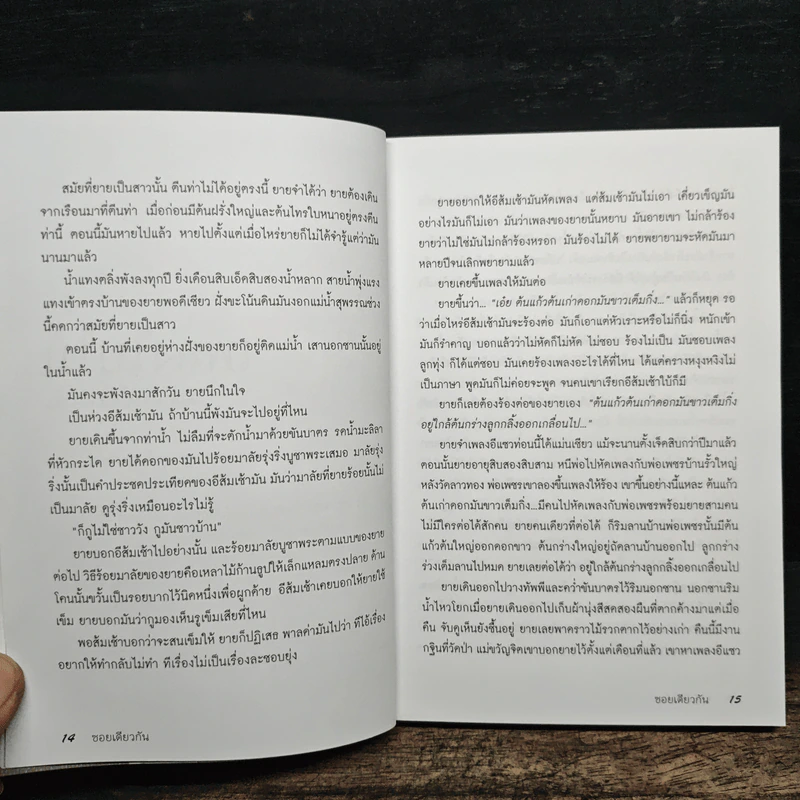 สมัยที่ยายเป็นสาวนั้น ตีนท่าไม่ได้อยู่ตรงนี้ ยายจำได้ว่า ยายต้องเดิน
จากเรือนมาที่ตีนท่า เมื่อก่อนมีต้นฝรั่งใหญ่และต้นไทรใบหนาอยู่ตรงตีน
ท่านี้ ตอนนี้มันหายไปแล้ว หายไปตั้งแต่เมื่อไหร่ยายก็ไม่ได้จำรู้แต่ว่ามัน
นานมาแล้ว
น้ำแทงตลิ่งพังลงทุกปี ยิ่งเดือนสิบเอ็ดสิบสองน้ำหลาก สายน้ำพุ่งแรง
แทงเข้าตรงบ้านของยายพอดีเชียว ฝั่งขะโน้นดินมันงอกแม่น้ำสุพรรณช่วง
นี้คดกว่าสมัยที่ยายเป็นสาว
ตอนนี้ บ้านที่เคยอยู่ห่างฝั่งของยายก็อยู่ติดแม่น้ำ เสานอกชานนั้นอยู่
ในน้ำแล้ว
มันคงจะพังลงมาสักวัน ยายนึกในใจ
เป็นห่วงอีส้มเช้ามัน ถ้าบ้านนี้พังมันจะไปอยู่ที่ไหน
ยายเดินขึ้นจากท่าน้ำ ไม่ลืมที่จะตักน้ำมาด้วยขันบาตร รดน้ำมะลิลา
ที่หัวกระได ยายได้ดอกของมันไปร้อยมาลัยรุ่งริ่งบูชาพระเสมอ มาลัยรุ่ง
ริ่งนั้นเป็นคำประชดประเทียดของอีส้มเช้ามัน มันว่ามาลัยที่ยายร้อยนั้นไม่
เป็นมาลัย ดูรุ่งริ่งเหมือนอะไรไม่รู้
"ก็กูไม่ใช่ชาววัง กูมันชาวบ้าน"
ยายบอกอีส้มเช้าไปอย่างนั้น และร้อยมาลัยบูชาพระตามแบบของยาย
ต่อไป วิธีร้อยมาลัยของยายคือเหลาไม้ก้านธูปให้เล็กแหลมตรงปลาย ด้าน
โคนนั้นขวั้นเป็นรอยบากไว้นิดหนึ่งเพื่อผูกด้าย อีส้มเช้าเคยบอกให้ยายใช้
เข็ม ยายบอกมันว่ากูมองเห็นรูเข็มเสียที่ไหน
พอส้มเช้าบอกว่าจะสนเข็มให้ ยายก็ปฏิเสธ พาลด่ามันไปว่า ทีไอ้เรื่อง
อยากให้ทำกลับไม่ทำ ทีเรื่องไม่เป็นเรื่องละชอบยุ่ง
14 ซอยเดียวกัน
ยายอยากให้อีส้มเช้ามันหัดเพลง แต่ส้มเช้ามันไม่เอา เคี่ยวเข็ญมัน
อย่างไรมันก็ไม่เอา มันว่าเพลงของยายนั้นหยาบ มันอายเขา ไม่กล้าร้อง
ยายว่าไม่ใช่มันไม่กล้าร้องหรอก มันร้องไม่ได้ ยายพยายามจะหัดมันมา
หลายปีจนเลิกพยายามแล้ว
ยายเคยขึ้นเพลงให้มันต่อ
ยายขึ้นว่า... "เอ๋ย ต้นแก้วต้นเก่าดอกมันขาวเต็มกิ่ง..." แล้วก็หยุด รอ
ว่าเมื่อไหร่อีส้มเช้ามันจะร้องต่อ มันก็เอาแต่หัวเราะหรือไม่ก็นิ่ง หนักเข้า
มันก็รำคาญ บอกแล้วว่าไม่หัดก็ไม่หัด ไม่ชอบ ร้องไม่เป็น มันชอบเพลง
ลูกทุ่ง ก็ได้แต่ชอบ มันเคยร้องเพลงอะไรได้ที่ไหน ได้แต่ครางหงุงหงิงไม่
เป็นภาษา พูดมันก็ไม่ค่อยจะพูด จนคนเขาเรียกอีส้มเช้าใบ้ก็มี
ยายก็เลยต้องร้องต่อของยายเอง "ต้นแก้วต้นเก่าดอกมันขาวเต็มกิ่ง
อยู่ใกล้ต้นกร่างลูกกลิ้งออกเกลื่อนไป..."
ยายจำเพลงอีแซวท่อนนี้ได้แม่นเชียว แม้จะนานตั้งเจ็ดสิบกว่าปีมาแล้ว
ตอนนั้นยายอายุสิบสองสิบสาม หนีพ่อไปหัดเพลงกับพ่อเพชรบ้านรั้วใหญ่
หลังวัดลาวทอง พ่อเพชรเขาลองขึ้นเพลงให้ร้อง เขาขึ้นอย่างนี้แหละ ต้นแก้ว
ต้นเก่าดอกมันขาวเต็มกิ่ง...มีคนไปหัดเพลงกับพ่อเพชรพร้อมยายสามคน
ไม่มีใครต่อได้สักคน ยายคนเดียวที่ต่อได้ ก็ริมลานบ้านพ่อเพชรนั้นมีต้น
แก้วต้นใหญ่ออกดอกขาว ต้นกร่างใหญ่อยู่ถัดลานบ้านออกไป ลูกกร่าง
ร่วงเต็มลานไปหมด ยายเลยต่อได้ว่า อยู่ใกล้ต้นกร่างลูกกลิ้งออกเกลื่อนไป
ยายเดินออกไปวางทัพพีและคว่ำขันบาตรไว้ริมนอกชาน นอกชานริม
น้ำไหวโยกเมื่อยายเดินออกไปเก็บผ้านุ่งสีสดสองผืนที่ตากค้างมาแต่เมื่อ
คืน จับดูเห็นยังชื้นอยู่ ยายเลยพาดราวไม้รวกตากไว้อย่างเก่า คืนนี้มีงาน
กฐินที่วัดป่า แม่ขวัญจิตเขาบอกยายไว้ตั้งแต่เดือนที่แล้ว เขาหาเพลงอีแซว
ซอยเดียวกัน 15